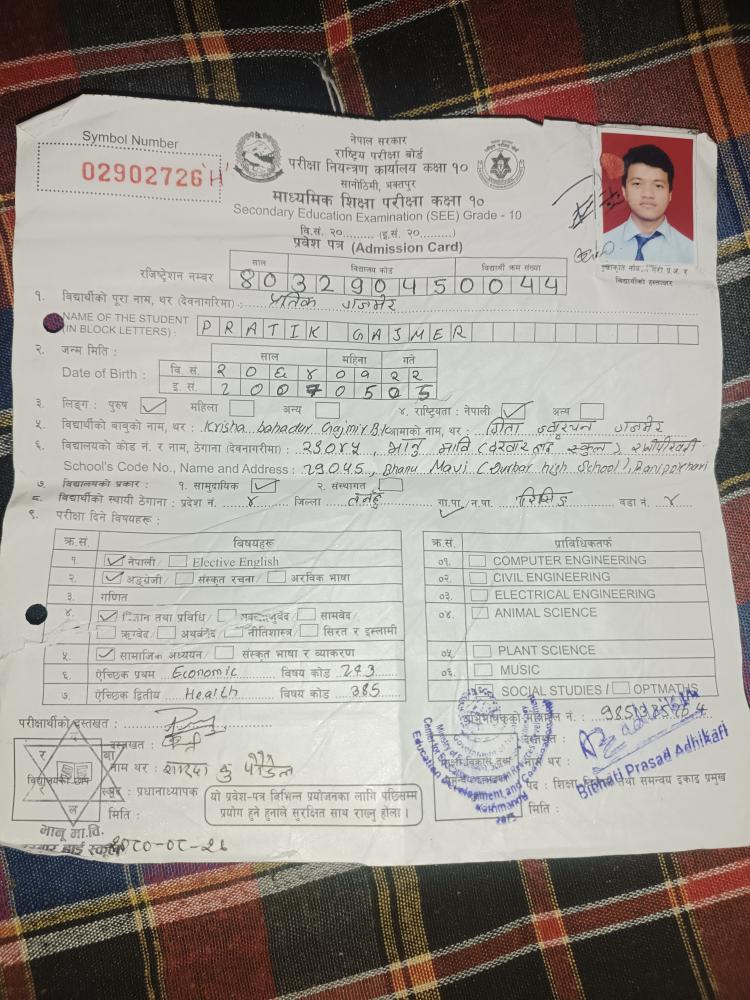 Symbol Number
02902726 'H'
नेपाल सरकार
राष्ट्रिय परीक्षा बोर्ड
परीक्षा नियन्त्रण कार्यालय कक्षा १०
सानोठिमी, भक्तपुर
माध्यमिक शिक्षा परीक्षा कक्षा १०
Secondary Education Examination (SEE) Grade - 10
वि.सं. २०......... (इ.सं. २०.........)
प्रवेश पत्र (Admission Card)
विद्यार्थीको हस्ताक्षर
साल विद्यालय कोड विद्यार्थी क्रम संख्या
रजिष्ट्रेशन नम्बर 803290450044
१. विद्यार्थीको पूरा नाम, थर (देवनागरिमा) : प्रतिक गजमेर
NAME OF THE STUDENT
(IN BLOCK LETTERS) : PRATIK GAJMER
२. जन्म मिति : साल महिना गते
Date of Birth : वि. सं. २०६४ ०१ २२
इ. सं. 2007 05 05
३. लिङ्ग : पुरुष महिला अन्य ४. राष्ट्रियता : नेपाली अन्य
५. विद्यार्थीको बाबुको नाम, थर : Krisha bahadur Gajmir B.K आमाको नाम, थर : गजमेर
६. विद्यालयको कोड नं. र नाम, ठेगाना (देवनागरीमा) : २९०४५, भानु मावि
School's Code No., Name and Address : 29045, Bhanu Mavi (Durbar high School), Ranipokhari
७. विद्यालयको प्रकार : १. सामुदायिक २. संस्थागत
८. विद्यार्थीको स्थायी ठेगाना : प्रदेश नं. ४ जिल्ला तनहुँ गा.पा./न.पा. वडा नं. ४
९. परीक्षा दिने विषयहरू :
क्र.सं. विषयहरू
१. नेपाली/ Elective English
२. अङ्ग्रेजी/ संस्कृत रचना/ अरबिक भाषा
३. गणित
४. विज्ञान तथा प्रविधि/ सामवेद/
ऋग्वेद/ अथर्ववेद/ नीतिशास्त्र/ सिरत ए इस्लामी
५. सामाजिक अध्ययन/ संस्कृत भाषा र व्याकरण
६. ऐच्छिक प्रथम Economic विषय कोड 243
७. ऐच्छिक द्वितीय Health विषय कोड 385
क्र.सं. प्राविधिकतर्फ
०१. COMPUTER ENGINEERING
०२. CIVIL ENGINEERING
०३. ELECTRICAL ENGINEERING
०४. ANIMAL SCIENCE
०५. PLANT SCIENCE
०६. MUSIC
SOCIAL STUDIES / OPTMATHS
परीक्षार्थीको दस्तखत :
दस्तखत :
नाम थर : शारदा कु पौडेल
पद : प्रधानाध्यापक
मिति :
विद्यालयको छाप
भानु मा.वि.
यो प्रवेश-पत्र विभिन्न प्रयोजनका लागि पछिसम्म
प्रयोग हुने हुनाले सुरक्षित साथ राख्नु होला ।
नाम थर :
Bibhuti Prasad Adhikari
पद : शिक्षा समन्वय इकाइ प्रमुख
मिति :
Education Development and
Kathmandu